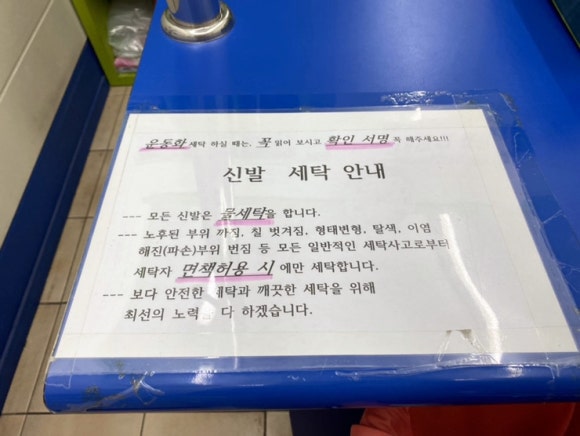 운동화 세탁 하실 때는, 꼭 읽어 보시고 확인 서명 꼭 해주세요!!!
신발 세탁 안내
--- 모든 신발은 물세탁을 합니다.
--- 노후된 부위 까짐, 칠 벗겨짐, 형태변형, 탈색, 이염
해진(파손)부위 번짐 등 모든 일반적인 세탁사고로부터
세탁자 면책허용 시 에만 세탁합니다.
--- 보다 안전한 세탁과 깨끗한 세탁을 위해
최선의 노력을 다 하겠습니다.